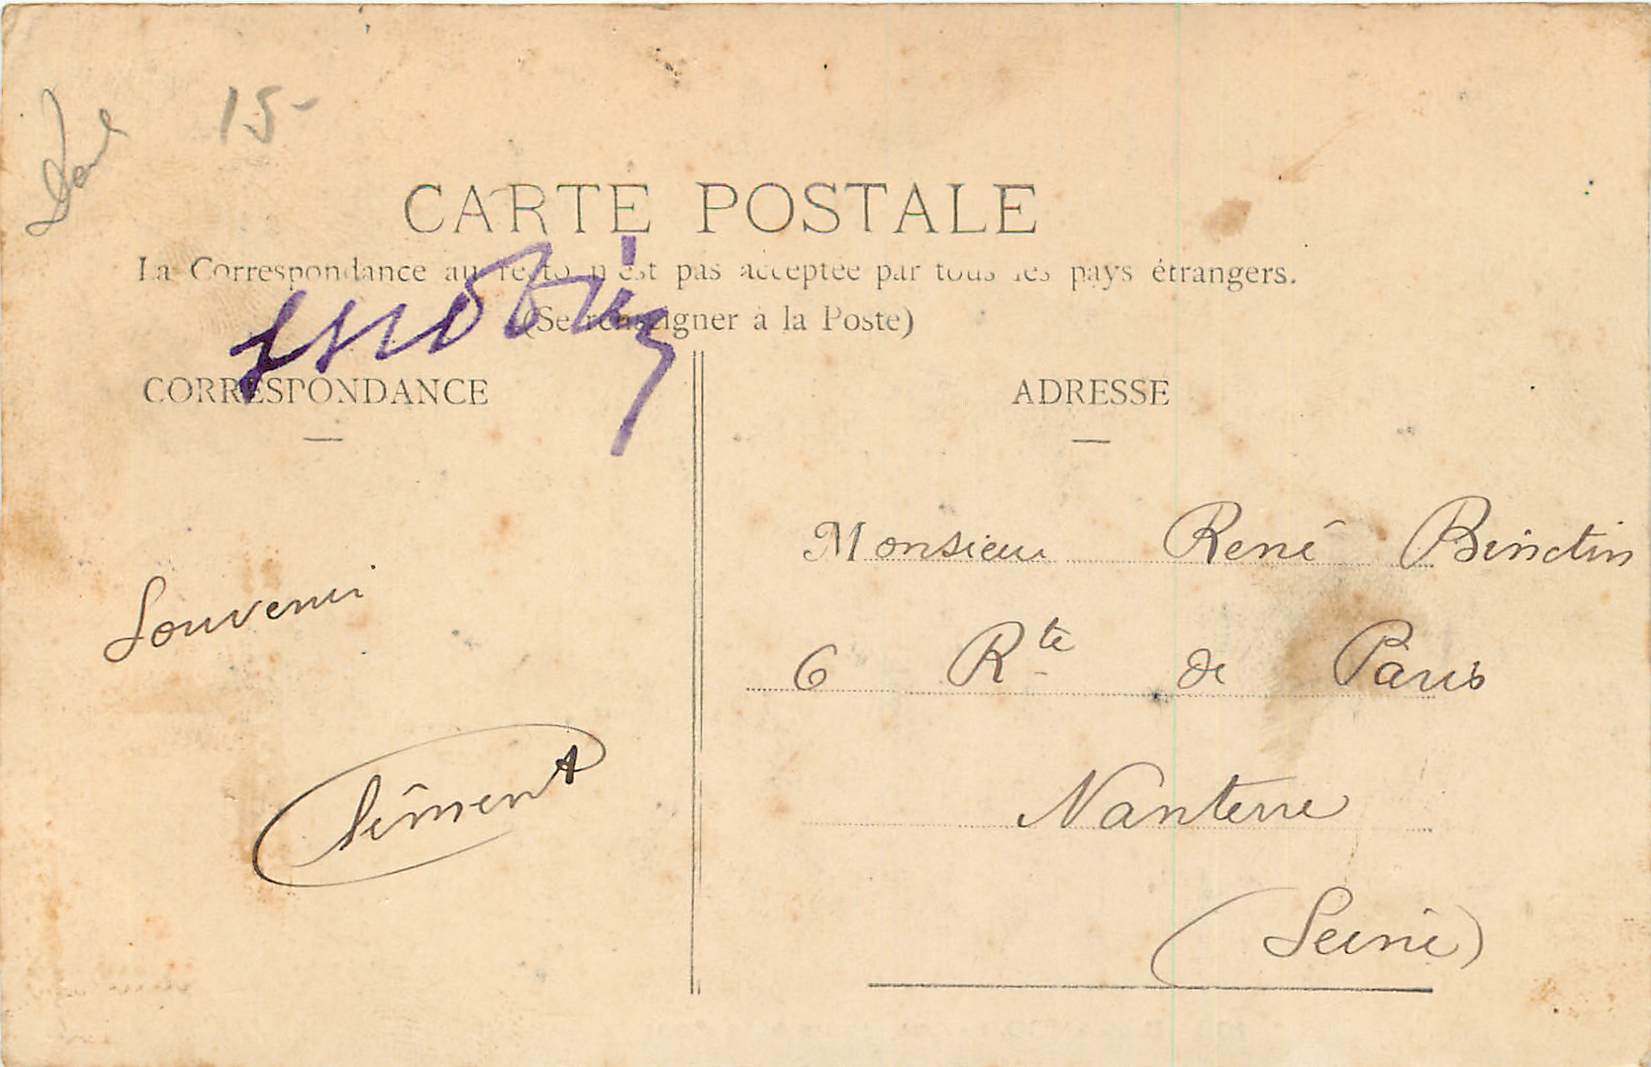 15-
CARTE POSTALE
La Correspondance au recto n'est pas acceptée par tous les pays étrangers.
(Se renseigner à la Poste)
CORRESPONDANCE
ADRESSE
Souvenir
Clément
Monsieur René Binctin
6 Rte de Paris
Nanterre
(Seine)